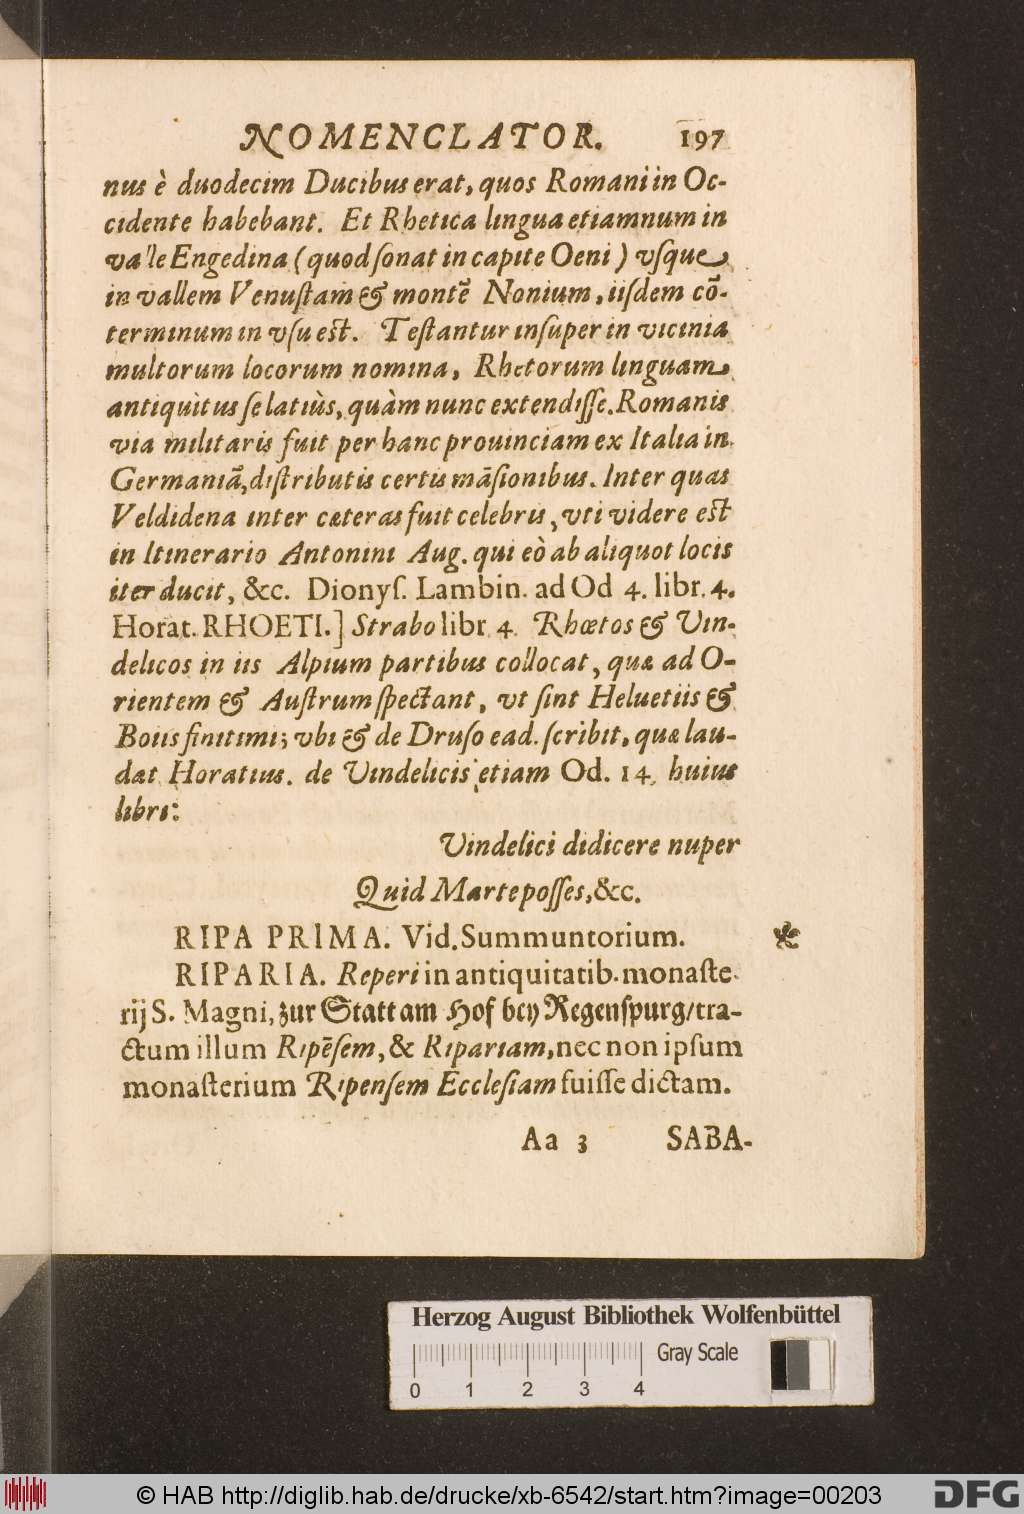 NOMENCLATOR. 197
nus è duodecim Ducibus erat, quos Romani in Oc-
cidente habebant. Et Rhetica lingua etiamnum in
valle Engedina (quod ſonat in capite Oeni) vſque
in vallem Venuſtam & montē Nonium, iiſdem cō-
terminum in vſu eſt. Teſtantur inſuper in vicinia
multorum locorum nomina, Rhetorum linguam
antiquitus ſe latiùs, quàm nunc extendiſſe. Romanis
via militaris fuit per hanc prouinciam ex Italia in
Germaniā, diſtributis certis māſionibus. Inter quas
Veldidena inter cæteras fuit celebris, vti videre eſt
in Itinerario Antonini Aug. qui eò ab aliquot locis
iter ducit, &c. Dionyſ. Lambin. ad Od 4. libr. 4.
Horat. RHOETI.] Strabo libr. 4. Rhœtos & Vin-
delicos in iis Alpium partibus collocat, quæ ad O-
rientem & Auſtrum ſpectant, vt ſint Heluetiis &
Boiis finitimi; vbi & de Druſo ead. ſcribit, quæ lau-
dat Horatius. de Vindelicis etiam Od. 14. huius
libri:
Vindelici didicere nuper
Quid Marte poſſes, &c.
RIPA PRIMA. Vid. Summuntorium.
RIPARIA. Reperi in antiquitatib. monaſte-
rij S. Magni, zur Statt am Hof bey Regenſpurg/ tra-
ctum illum Ripēſem, & Ripariam, nec non ipſum
monaſterium Ripenſem Eccleſiam fuiſſe dictam.
Aa 3 SABA-
Herzog August Bibliothek Wolfenbüttel
Gray Scale
0 1 2 3 4
© HAB http://diglib.hab.de/drucke/xb-6542/start.htm?image=00203
DFG